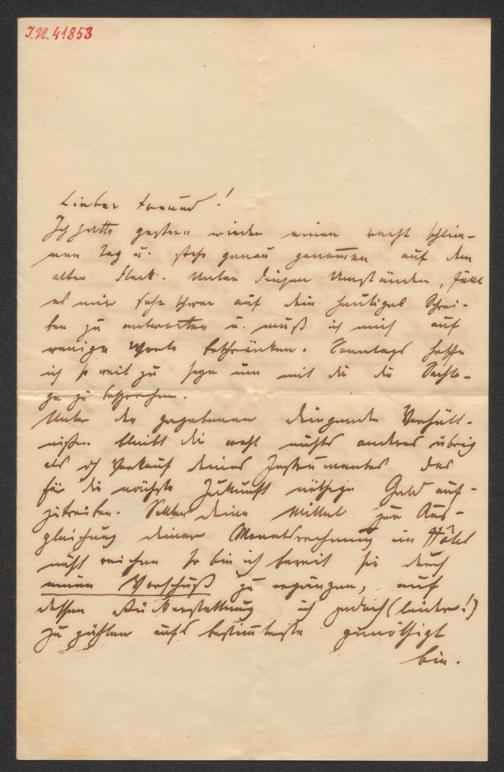 I.N. 41853
Lieber Freund!
Ich hatte gestern wieder einen recht schlim-
men Tag u. stehe genau genommen auf dem
alten Fleck. Unter diesen Umständen, fällt
es mir sehr schwer auf dein heutiges Schrei-
ben zu antworten u. muß ich mich auf
wenige Worte beschränken. Sonntags hoffe
ich so weit zu sein um mit dir die Sachla-
ge zu besprechen.
Unter den gegebenen dringenden Verhält-
nißen bleibt dir wohl nichts anderes übrig
als der Verkauf deines Instrumentes das
für die nächste Zukunft nöthige Geld auf-
zutreiben. Sollten deine Mittel zur Aus-
gleichung deiner Monatsrechnung im Hôtel
nicht reichen so bin ich bereit sie durch
einen Vorschuß zu ergänzen, auf
dessen Rückerstattung ich jedoch (leider!)
zu zählen aufs bestimmteste genöthigt
bin.